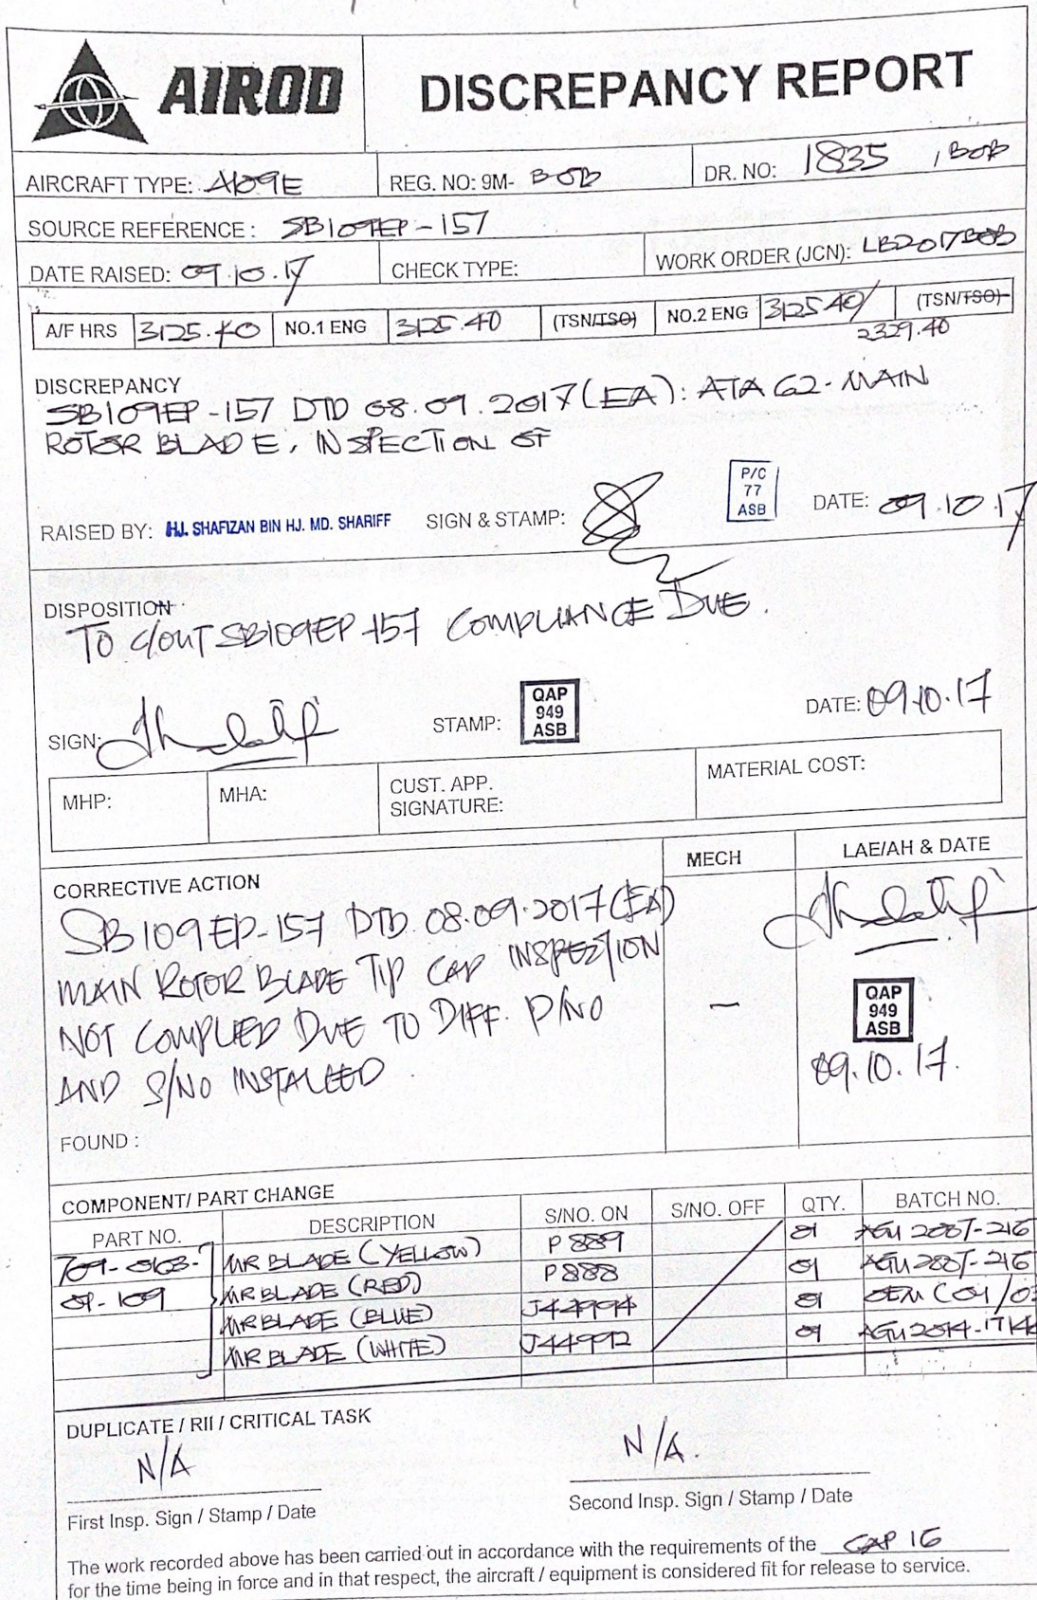 AIROD
DISCREPANCY REPORT
AIRCRAFT TYPE: A109E REG. NO: 9M- BOB DR. NO: 1835 / BOB
SOURCE REFERENCE : SB109EP-157
DATE RAISED: 09.10.17 CHECK TYPE: WORK ORDER (JCN): LB2017BOB
A/F HRS 3125.40 NO.1 ENG 3125.40 (TSN/TSO) NO.2 ENG 3125.40 (TSN/TSO)
2329.40
DISCREPANCY
SB109EP-157 DTD 08.09.2017 (EA): ATA 62-MAIN
ROTOR BLADE, INSPECTION OF
P/C
77
ASB
RAISED BY: HJ. SHAFIZAN BIN HJ. MD. SHARIFF SIGN & STAMP: DATE: 09.10.17
DISPOSITION
TO C/OUT SB109EP-157 COMPLIANCE DUE.
QAP
949
ASB
SIGN: STAMP: DATE: 09.10.17
MHP: MHA: CUST. APP. SIGNATURE: MATERIAL COST:
MECH LAE/AH & DATE
CORRECTIVE ACTION
SB109EP-157 DTD 08.09.2017 (EA)
MAIN ROTOR BLADE TIP CAP INSPECTION
NOT COMPLIED DUE TO DIFF. P/NO
AND S/NO INSTALLED.
–
QAP
949
ASB
09.10.17.
FOUND :
COMPONENT/ PART CHANGE
PART NO. DESCRIPTION S/NO. ON S/NO. OFF QTY. BATCH NO.
709-0103- MR BLADE (YELLOW) P889 01 AGU 2007-216
01-109 MR BLADE (RED) P888 01 AGU 2007-216
MR BLADE (BLUE) 01 OEM C01/03
MR BLADE (WHITE) J44992 01
DUPLICATE / RII / CRITICAL TASK
N/A N/A.
First Insp. Sign / Stamp / Date Second Insp. Sign / Stamp / Date
The work recorded above has been carried out in accordance with the requirements of the CAP 16
for the time being in force and in that respect, the aircraft / equipment is considered fit for release to service.